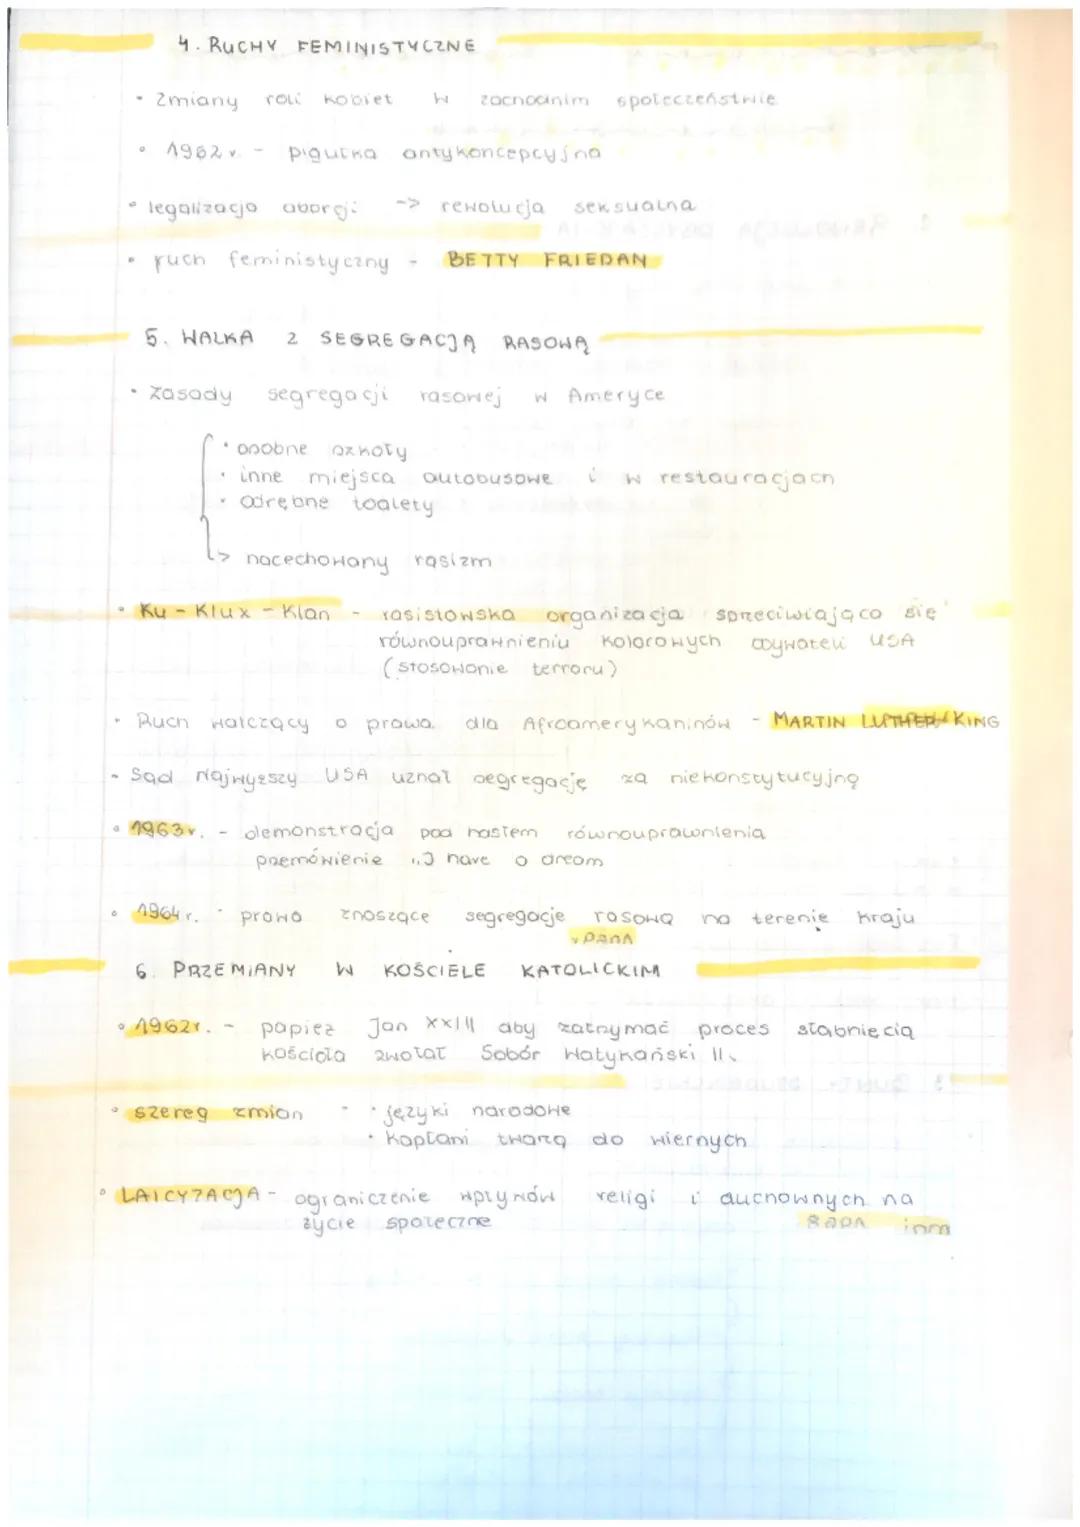 4. RUCHY FEMINISTYCZNE
• Zmiany roli kobiet w zachodnim społeczeństwie
• 1962 r. - pigułka antykoncepcyjna
• legalizacja aborcji -> rewolucja seksualna
• ruch feministyczny - BETTY FRIEDAN
5. WALKA Z SEGREGACJĄ RASOWĄ
• Zasady segregacji rasowej w Ameryce
• osobne szkoły
• inne miejsca autobusowe i w restauracjach
• odrębne toalety
-> nacechowany rasizm
• Ku - Klux - Klan - rasistowska organizacja sprzeciwiająca się
równouprawnieniu kolorowych obywateli USA
(stosowanie terroru)
• Ruch walczący o prawa dla Afroamerykaninów - MARTIN LUTHER KING
• Sąd Najwyższy USA uznał segregację za niekonstytucyjną
• 1963 r. - demonstracja pod hasłem równouprawnienia
przemówienie „I have a dream
• 1964 r. - prawo znoszące segregację rasową na terenie kraju
6. PRZEMIANY W KOŚCIELE KATOLICKIM
• 1962 r. - papież Jan XXIII aby zatrzymać proces słabnięcia
kościoła zwołał Sobór Watykański II.
• szereg zmian - • języki narodowe
• Kapłani twarzą do wiernych
• LAICYZACJA - ograniczenie wpływów religi i duchownych na
życie społeczne